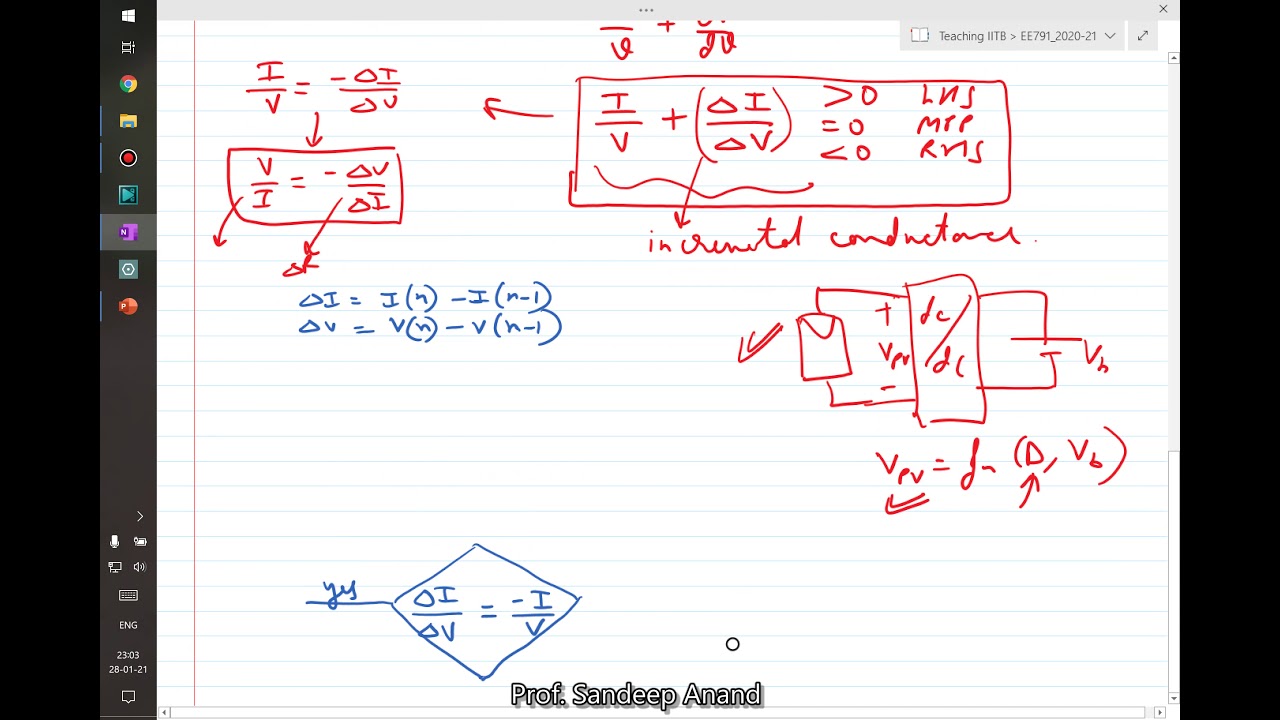 Teaching IITB > EE791_2020-21
I/V = -ΔI/ΔV
V/I = -ΔV/ΔI
I/V + (ΔI/ΔV) >0 LHS
=0 MPP
<0 RHS
incremental conductance.
ΔI = I(n) - I(n-1)
ΔV = V(n) - V(n-1)
+ dc
Vpv / Vb
- dc
Vpv = fn (D, Vb)
yes
ΔI/ΔV = -I/V
ENG
23:03
28-01-21
Prof. Sandeep Anand